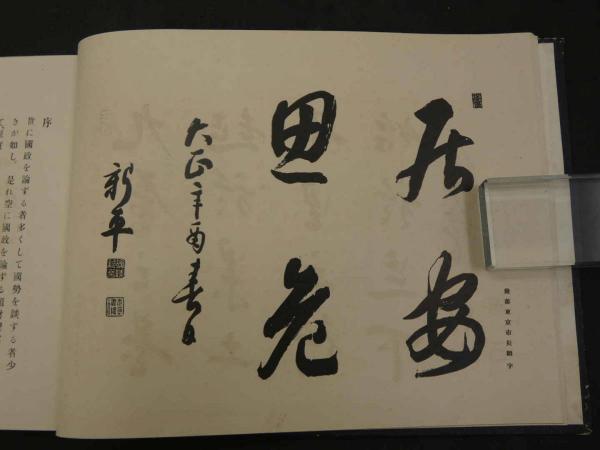 後藤東京市長題字
居安
思危
大正辛酉春日
新平
序
世に國政を論ずる者多くして國勢を談ずる者少
きが如し。是れ空に國政を論ずる